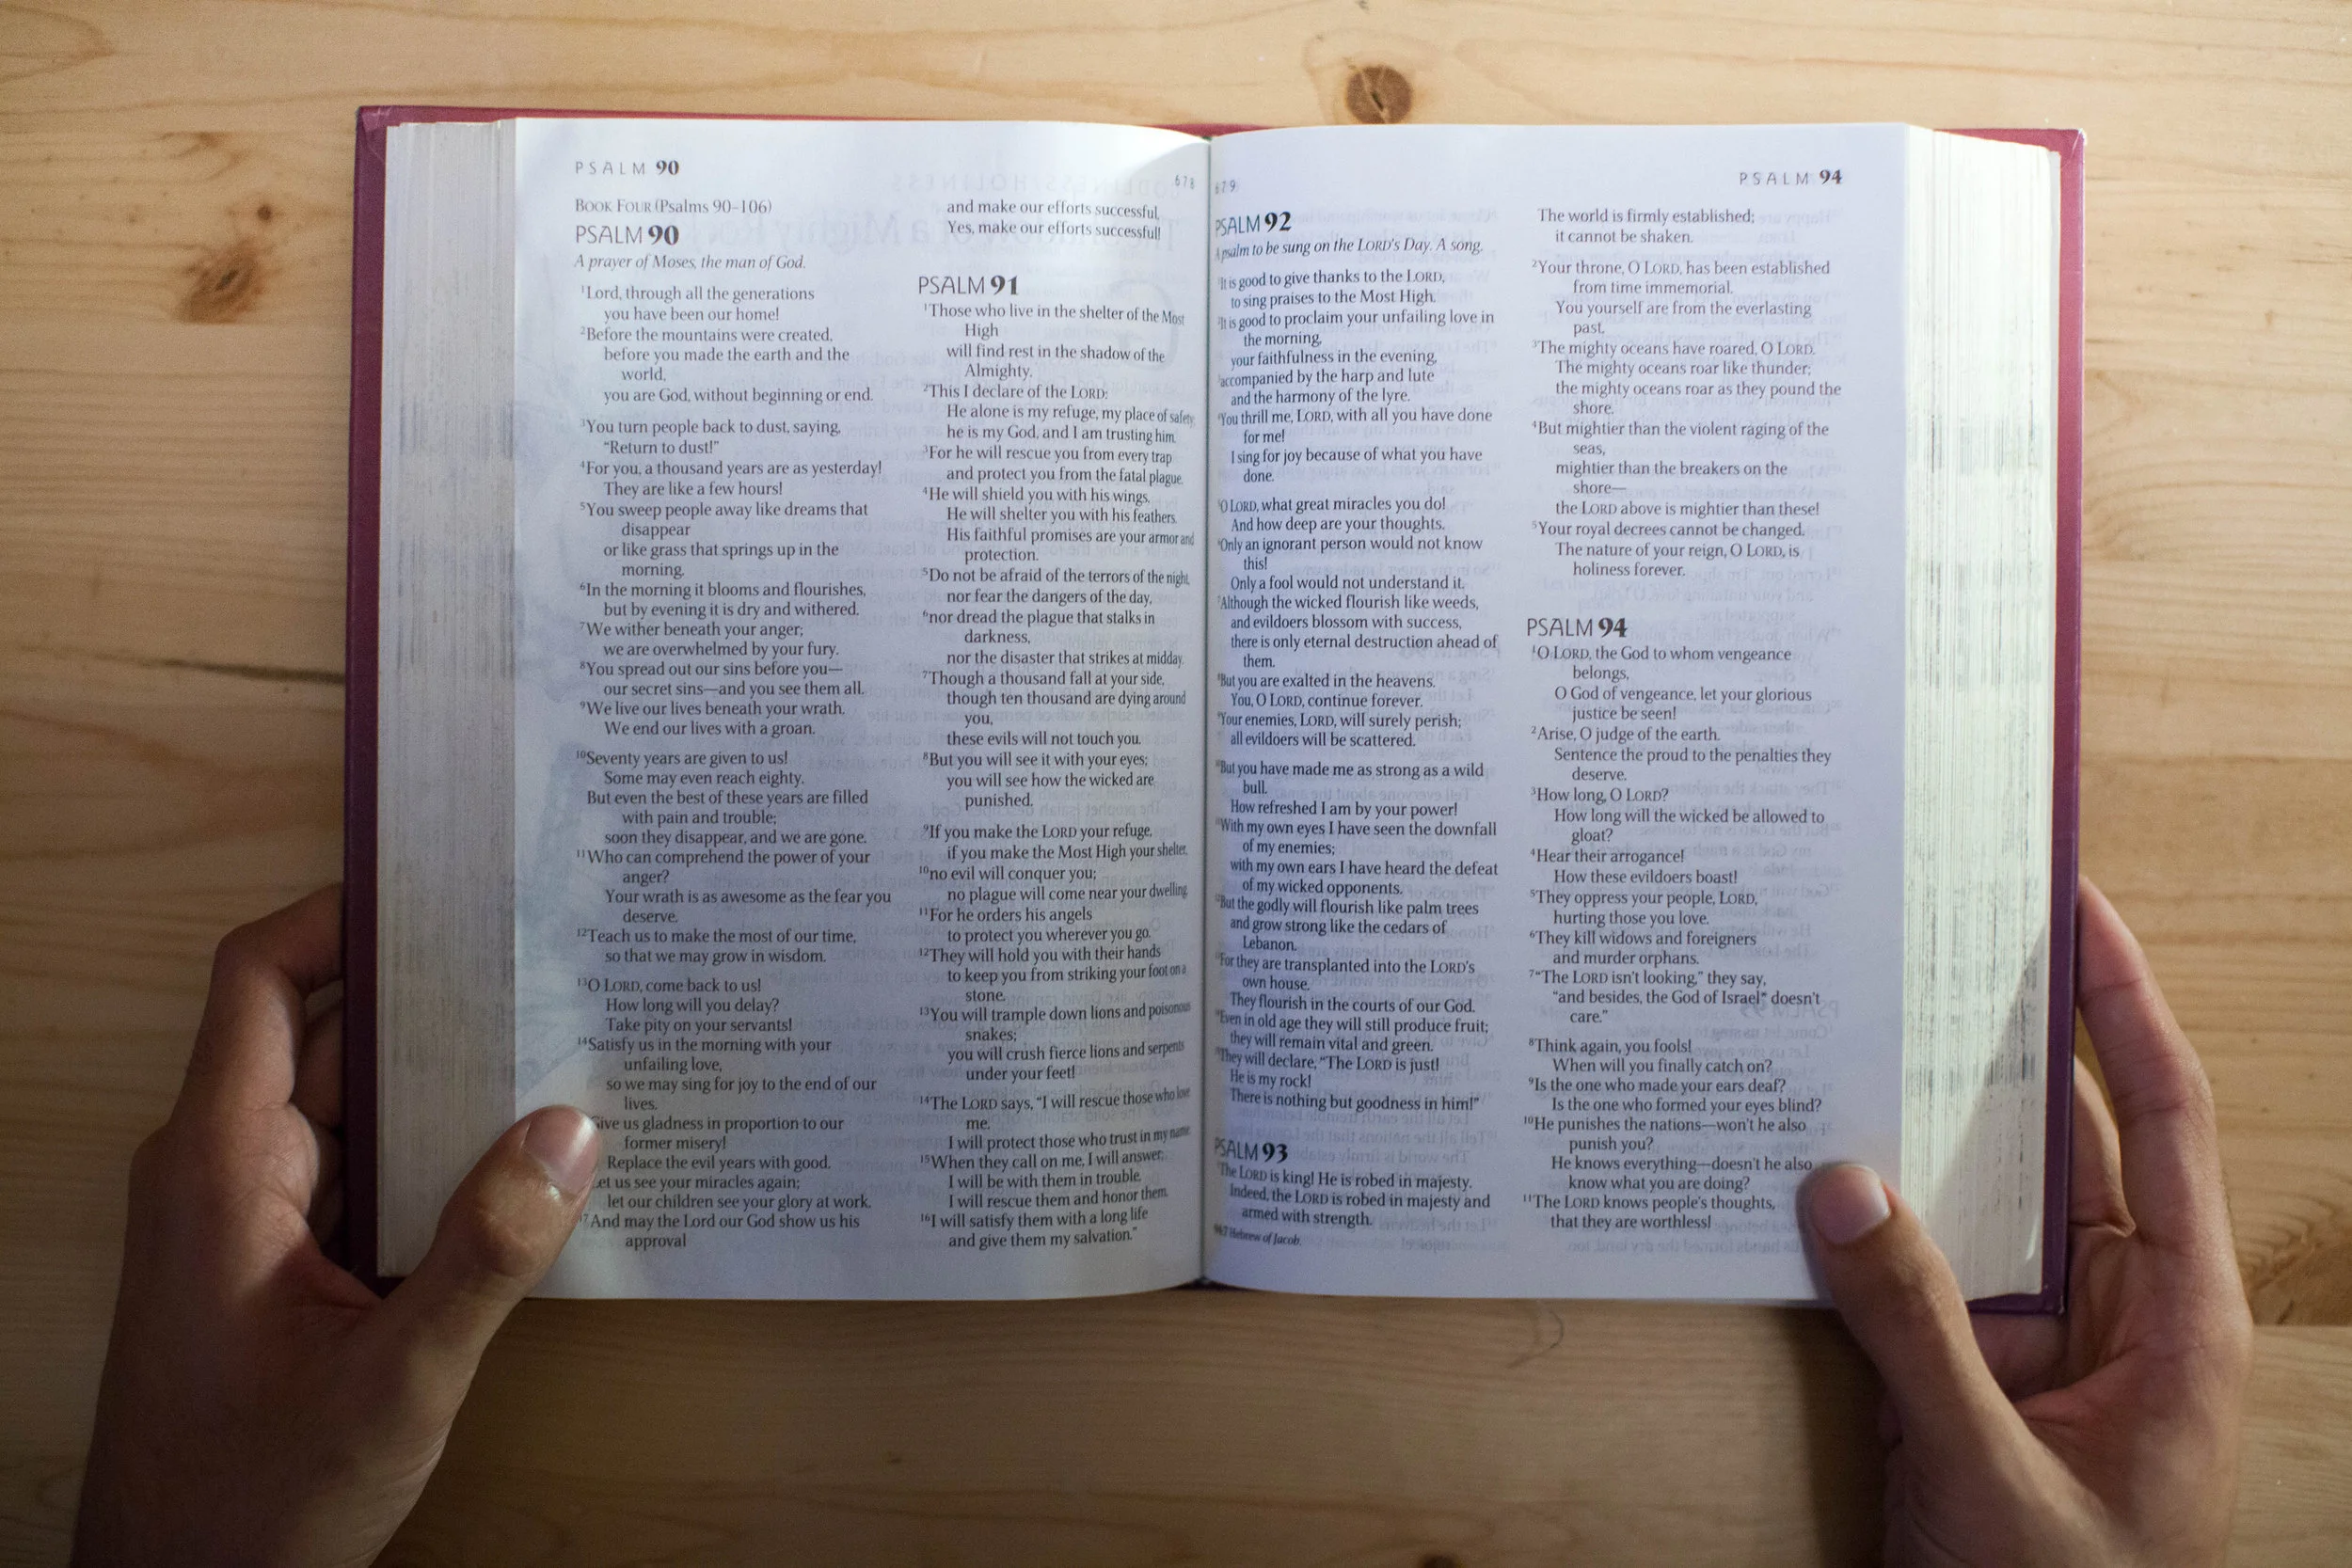 PSALM 90
678
BOOK FOUR (Psalms 90–106)
PSALM 90
A prayer of Moses, the man of God.
1Lord, through all the generations
you have been our home!
2Before the mountains were created,
before you made the earth and the
world,
you are God, without beginning or end.
3You turn people back to dust, saying,
“Return to dust!”
4For you, a thousand years are as yesterday!
They are like a few hours!
5You sweep people away like dreams that
disappear
or like grass that springs up in the
morning.
6In the morning it blooms and flourishes,
but by evening it is dry and withered.
7We wither beneath your anger;
we are overwhelmed by your fury.
8You spread out our sins before you—
our secret sins—and you see them all.
9We live our lives beneath your wrath.
We end our lives with a groan.
10Seventy years are given to us!
Some may even reach eighty.
But even the best of these years are filled
with pain and trouble;
soon they disappear, and we are gone.
11Who can comprehend the power of your
anger?
Your wrath is as awesome as the fear you
deserve.
12Teach us to make the most of our time,
so that we may grow in wisdom.
13O LORD, come back to us!
How long will you delay?
Take pity on your servants!
14Satisfy us in the morning with your
unfailing love,
so we may sing for joy to the end of our
lives.
Give us gladness in proportion to our
former misery!
Replace the evil years with good.
Let us see your miracles again;
let our children see your glory at work.
17And may the Lord our God show us his
approval
and make our efforts successful.
Yes, make our efforts successful!
PSALM 91
1Those who live in the shelter of the Most
High
will find rest in the shadow of the
Almighty.
2This I declare of the LORD:
He alone is my refuge, my place of safety;
he is my God, and I am trusting him.
3For he will rescue you from every trap
and protect you from the fatal plague.
4He will shield you with his wings.
He will shelter you with his feathers.
His faithful promises are your armor and
protection.
5Do not be afraid of the terrors of the night,
nor fear the dangers of the day,
6nor dread the plague that stalks in
darkness,
nor the disaster that strikes at midday.
7Though a thousand fall at your side,
though ten thousand are dying around
you,
these evils will not touch you.
8But you will see it with your eyes;
you will see how the wicked are
punished.
9If you make the LORD your refuge,
if you make the Most High your shelter,
10no evil will conquer you;
no plague will come near your dwelling.
11For he orders his angels
to protect you wherever you go.
12They will hold you with their hands
to keep you from striking your foot on a
stone.
13You will trample down lions and poisonous
snakes;
you will crush fierce lions and serpents
under your feet!
14The LORD says, “I will rescue those who love
me.
I will protect those who trust in my name.
15When they call on me, I will answer;
I will be with them in trouble.
I will rescue them and honor them.
16I will satisfy them with a long life
and give them my salvation.”
679
PSALM 94
PSALM 92
A psalm to be sung on the LORD's Day. A song.
It is good to give thanks to the LORD,
to sing praises to the Most High.
It is good to proclaim your unfailing love in
the morning,
your faithfulness in the evening,
accompanied by the harp and lute
and the harmony of the lyre.
You thrill me, LORD, with all you have done
for me!
I sing for joy because of what you have
done.
O LORD, what great miracles you do!
And how deep are your thoughts.
Only an ignorant person would not know
this!
Only a fool would not understand it.
Although the wicked flourish like weeds,
and evildoers blossom with success,
there is only eternal destruction ahead of
them.
But you are exalted in the heavens.
You, O LORD, continue forever.
Your enemies, LORD, will surely perish;
all evildoers will be scattered.
But you have made me as strong as a wild
bull.
How refreshed I am by your power!
With my own eyes I have seen the downfall
of my enemies;
with my own ears I have heard the defeat
of my wicked opponents.
But the godly will flourish like palm trees
and grow strong like the cedars of
Lebanon.
For they are transplanted into the LORD's
own house.
They flourish in the courts of our God.
Even in old age they will still produce fruit;
they will remain vital and green.
They will declare, “The LORD is just!
He is my rock!
There is nothing but goodness in him!”
PSALM 93
The LORD is king! He is robed in majesty.
Indeed, the LORD is robed in majesty and
armed with strength.
94:7 Hebrew of Jacob.
The world is firmly established;
it cannot be shaken.
2Your throne, O LORD, has been established
from time immemorial.
You yourself are from the everlasting
past.
3The mighty oceans have roared, O LORD.
The mighty oceans roar like thunder;
the mighty oceans roar as they pound the
shore.
4But mightier than the violent raging of the
seas,
mightier than the breakers on the
shore—
the LORD above is mightier than these!
5Your royal decrees cannot be changed.
The nature of your reign, O LORD, is
holiness forever.
PSALM 94
1O LORD, the God to whom vengeance
belongs,
O God of vengeance, let your glorious
justice be seen!
2Arise, O judge of the earth.
Sentence the proud to the penalties they
deserve.
3How long, O LORD?
How long will the wicked be allowed to
gloat?
4Hear their arrogance!
How these evildoers boast!
5They oppress your people, LORD,
hurting those you love.
6They kill widows and foreigners
and murder orphans.
7“The LORD isn't looking,” they say,
“and besides, the God of Israel* doesn't
care.”
8Think again, you fools!
When will you finally catch on?
9Is the one who made your ears deaf?
Is the one who formed your eyes blind?
10He punishes the nations—won't he also
punish you?
He knows everything—doesn't he also
know what you are doing?
11The LORD knows people's thoughts,
that they are worthless!